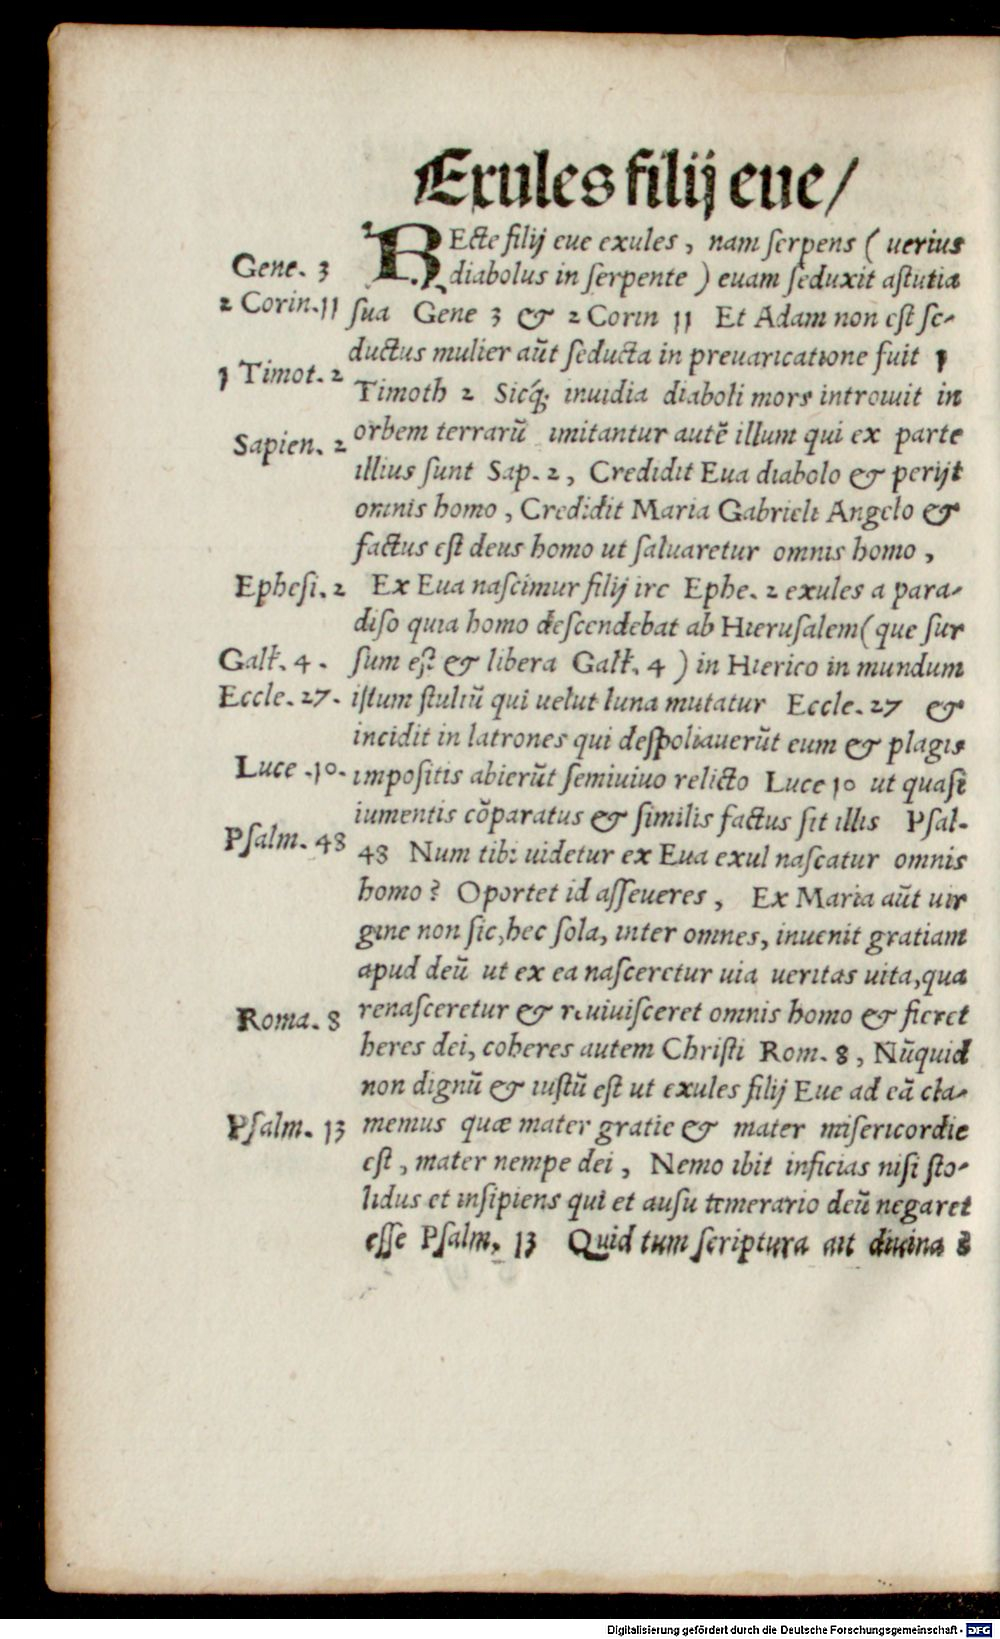 Exules filij eue/
REcte filij eue exules, nam serpens ( uerius
Gene. 3
diabolus in serpente ) euam seduxit astutia
2 Corin. 11
sua Gene 3 & 2 Corin 11 Et Adam non est se-
ductus mulier aūt seducta in preuaricatione fuit 1
1 Timot. 2
Timoth 2 Sicq́; inuidia diaboli mors introiuit in
orbem terrarū imitantur autē illum qui ex parte
Sapien. 2
illius sunt Sap. 2, Credidit Eua diabolo & perijt
omnis homo, Credidit Maria Gabrieli Angelo &
factus est deus homo ut saluaretur omnis homo,
Ephesi. 2
Ex Eua nascimur filij ire Ephe. 2 exules a para-
diso quia homo descendebat ab Hierusalem ( que sur
Galt̄. 4.
sum est & libera Galt̄. 4 ) in Hierico in mundum
Eccle. 27.
istum stultū qui uelut luna mutatur Eccle. 27 &
incidit in latrones qui despoliauerūt eum & plagis
Luce .10.
impositis abierūt semiuiuo relicto Luce 10 ut quasi
iumentis cōparatus & similis factus sit illis Psal-
Psalm. 48
48 Num tibi uidetur ex Eua exul nascatur omnis
homo? Oportet id asseueres, Ex Maria aūt uir
gine non sic, hec sola, inter omnes, inuenit gratiam
apud deū ut ex ea nasceretur uia ueritas uita, qua
Roma. 8
renasceretur & reuiuisceret omnis homo & fieret
heres dei, coheres autem Christi Rom. 8, Nūquid
non dignū & iustū est ut exules filij Eue ad eā cla-
Psalm. 13
memus quæ mater gratie & mater misericordie
est, mater nempe dei, Nemo ibit inficias nisi sto-
lidus et insipiens qui et ausu temerario deū negaret
esse Psalm. 13 Quid tum scriptura ait diuina ?
Digitalisierung gefördert durch die Deutsche Forschungsgemeinschaft - DFG